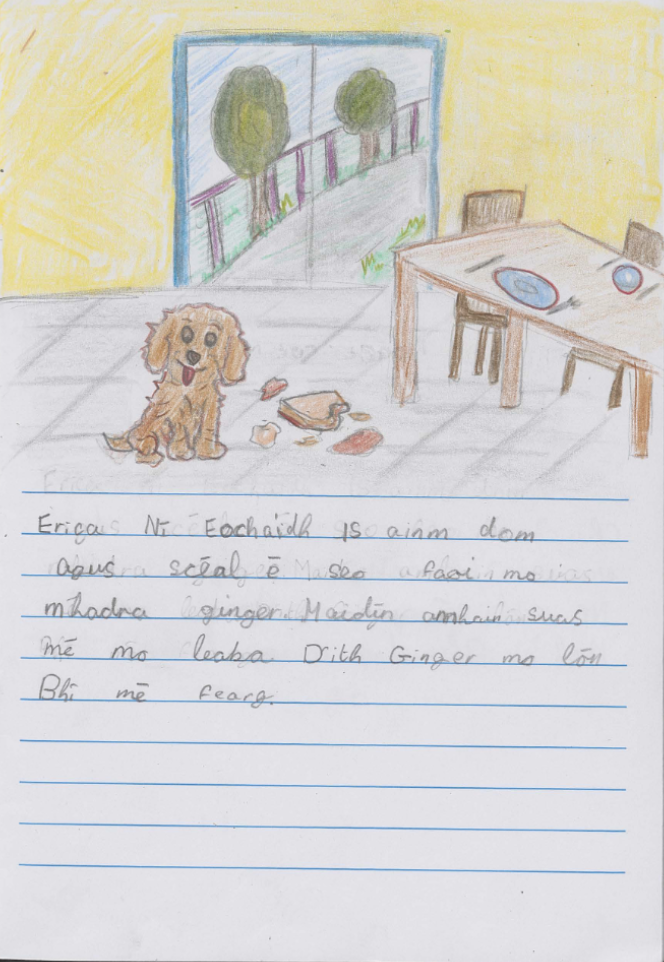 Erica Ní Eochaidh Is ainm dom
agus scéal é seo faoi mo
mhadra ginger. Maidín amhain suas
mé mo leaba D'ith Ginger mo lón
Bhí mé fearg.